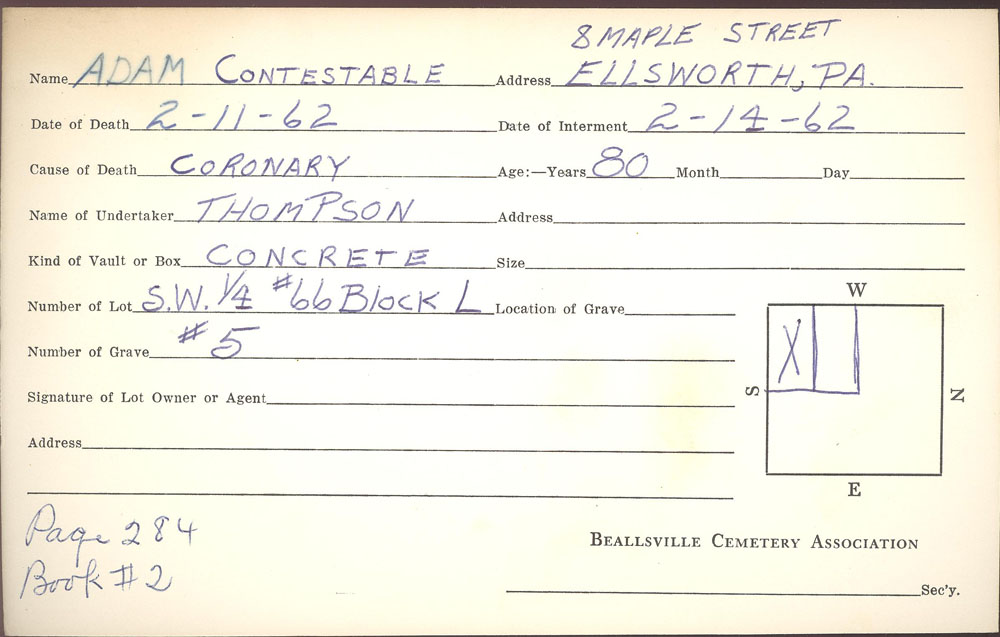 8 MAPLE STREET
Name ADAM CONTESTABLE Address ELLSWORTH, PA.
Date of Death 2-11-62 Date of Interment 2-14-62
Cause of Death CORONARY Age:—Years 80 Month Day
Name of Undertaker THOMPSON Address
Kind of Vault or Box CONCRETE Size
Number of Lot S.W. 1/4 #66 Block L Location of Grave
Number of Grave #5
Signature of Lot Owner or Agent
Address
W
X
S
N
E
Page 284
Book #2
BEALLSVILLE CEMETERY ASSOCIATION
Sec'y.